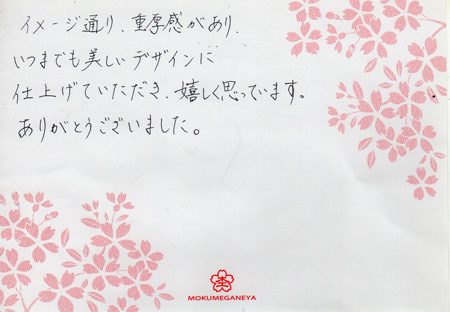 イメージ通り、重厚感があり、
いつまでも美しいデザインに
仕上げていただき、嬉しく思っています。
ありがとうございました。
MOKUMEGANEYA